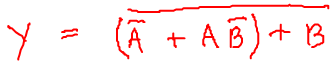 Y = \overline{(\overline{A} + A\overline{B}) + B}